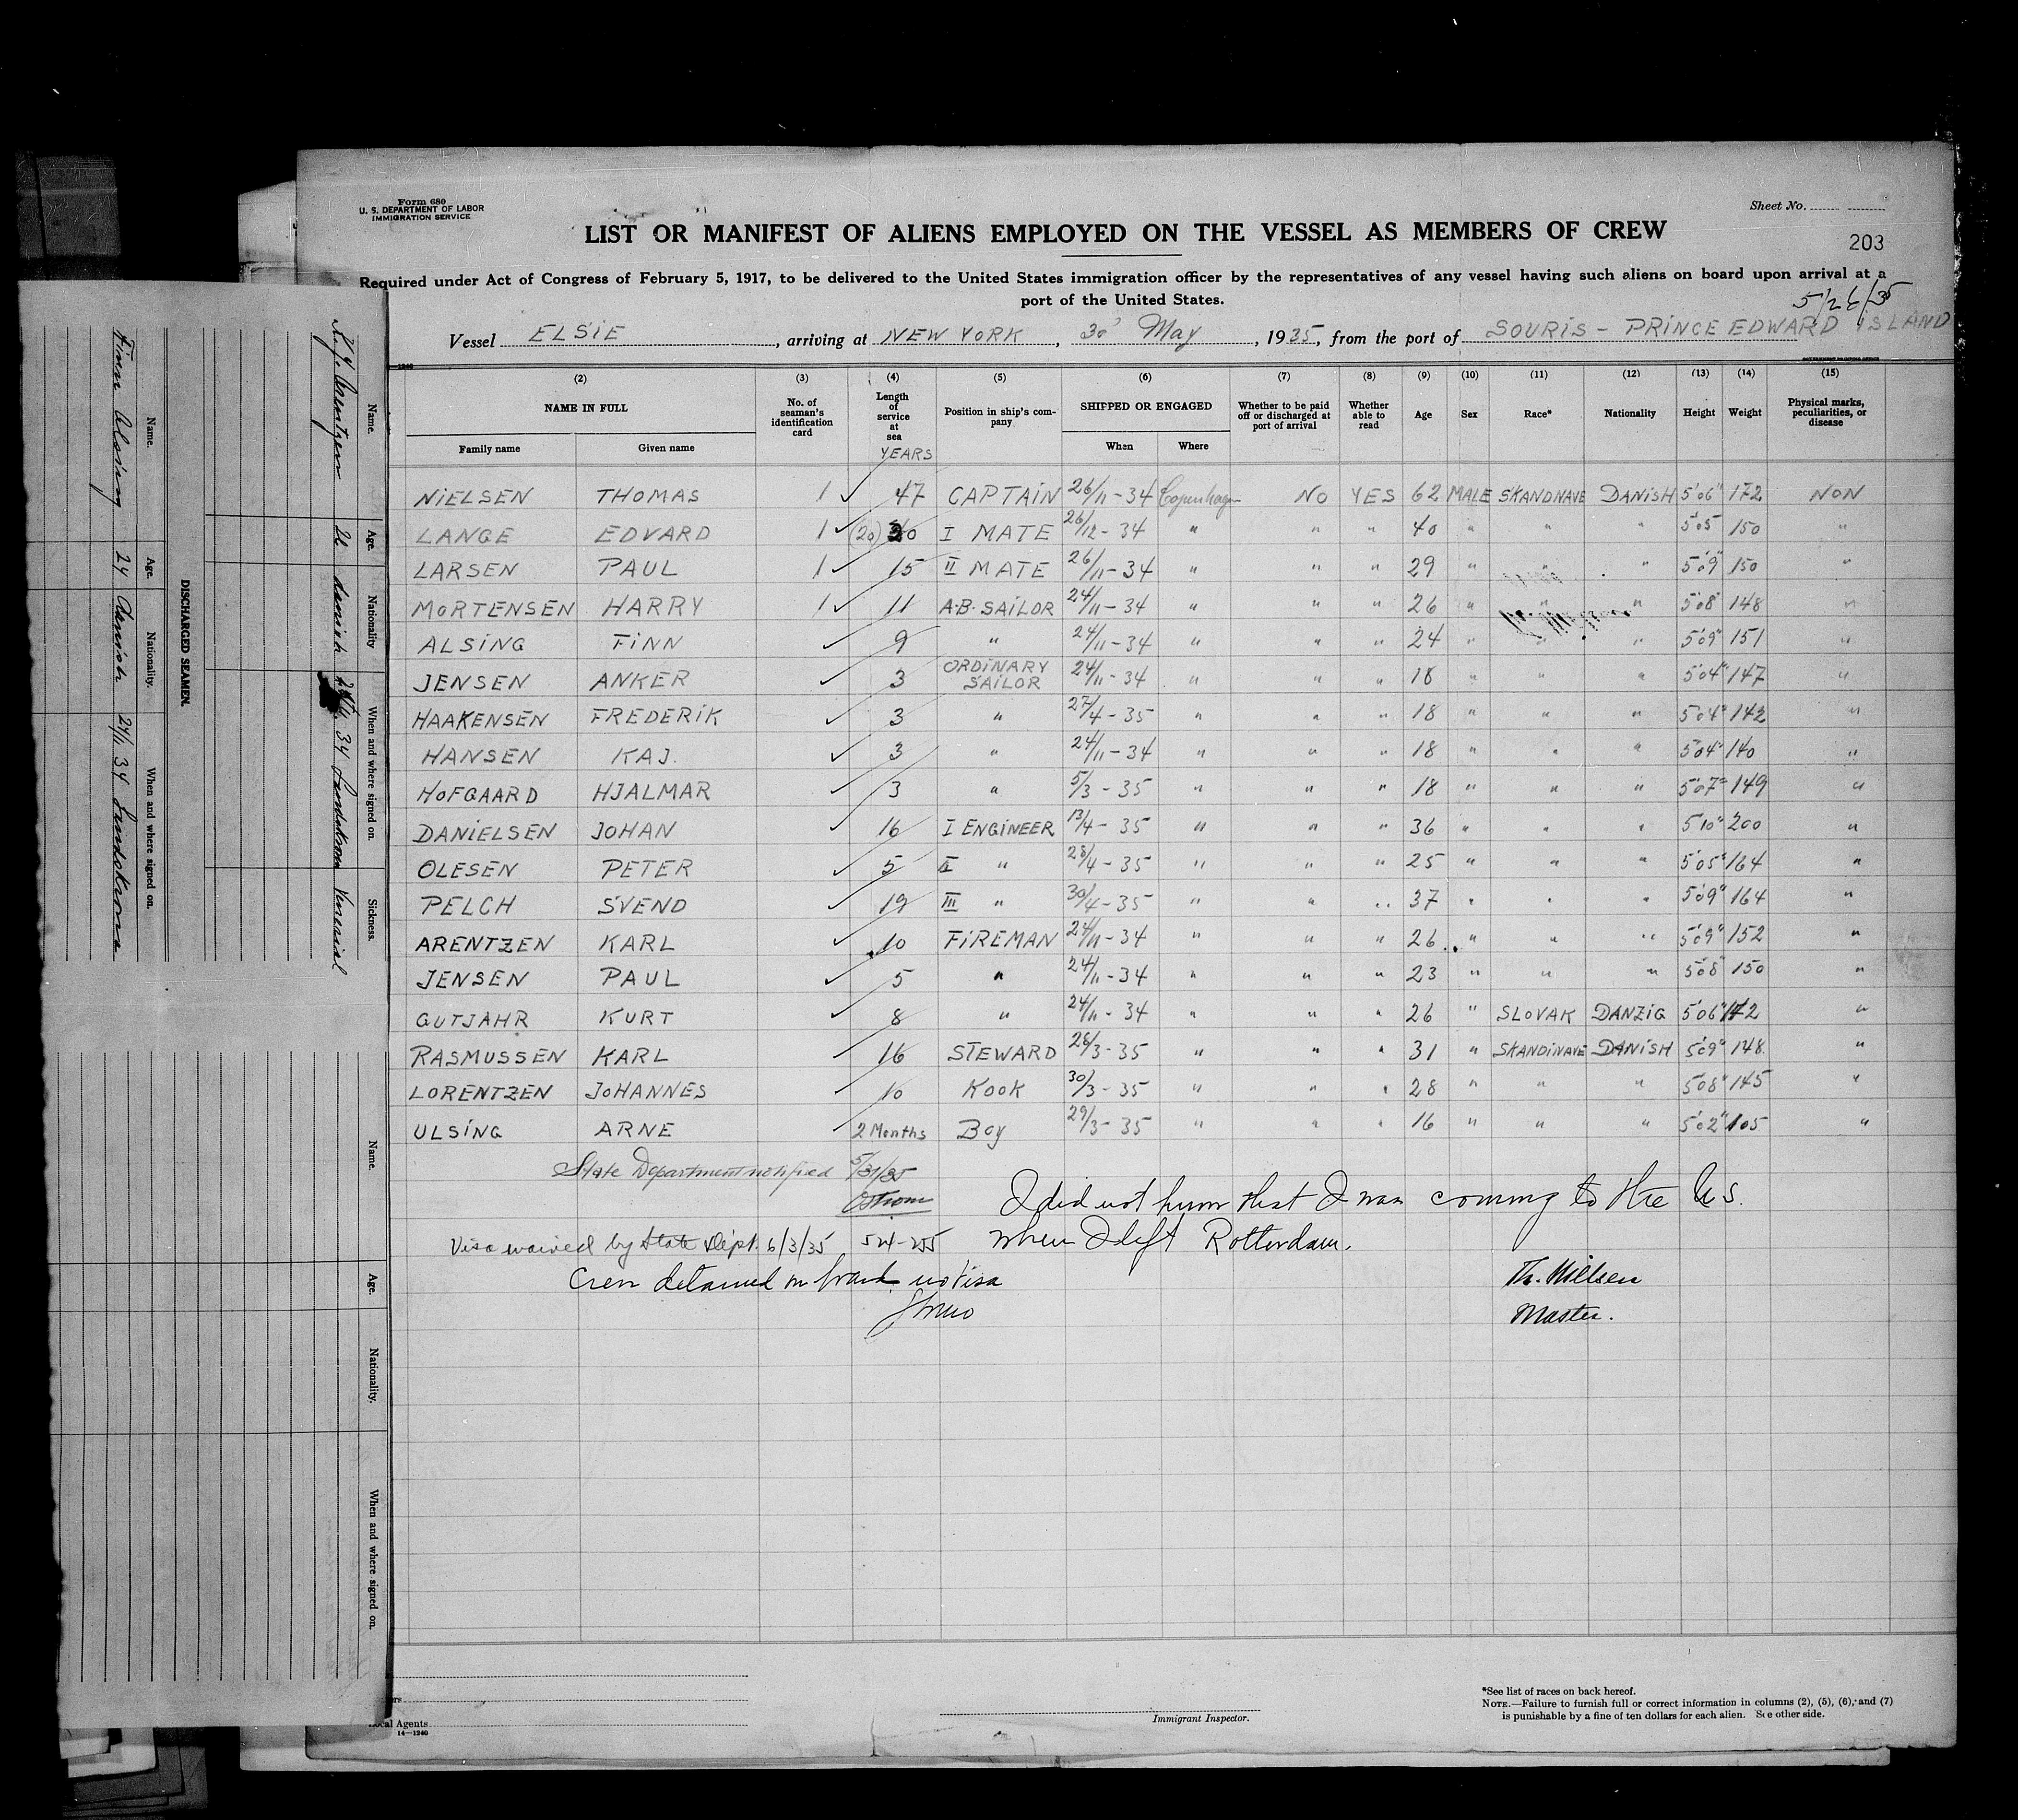 Form 680
U. S. DEPARTMENT OF LABOR
IMMIGRATION SERVICE
Sheet No.
LIST OR MANIFEST OF ALIENS EMPLOYED ON THE VESSEL AS MEMBERS OF CREW
203
Required under Act of Congress of February 5, 1917, to be delivered to the United States immigration officer by the representatives of any vessel having such aliens on board upon arrival at a
port of the United States.
5/26/35
Vessel ELSIE, arriving at NEW YORK, 30' May, 1935, from the port of SOURIS - PRINCE EDWARD ISLAND
(2) (3) (4) (5) (6) (7) (8) (9) (10) (11) (12) (13) (14) (15)
NAME IN FULL Family name Given name No. of seaman's identification card Length of service at sea YEARS Position in ship's company SHIPPED OR ENGAGED When Where Whether to be paid off or discharged at port of arrival Whether able to read Age Sex Race* Nationality Height Weight Physical marks, peculiarities, or disease
NIELSEN THOMAS 1 ✓ 47 CAPTAIN 26/11-34 Copenhagen NO YES 62 MALE SKANDNAVE DANISH 5'06" 172 NON
LANGE EDVARD 1 ✓ (20) 20 I MATE 26/12-34 " " " 40 " " " 5'05 150 "
LARSEN PAUL 1 ✓ 15 II MATE 26/11-34 " " " 29 " " " 5'09" 150 "
MORTENSEN HARRY 1 ✓ 11 A·B·SAILOR 24/11-34 " " " 26 " " " 5'08" 148 "
ALSING FINN ✓ 9 " 24/11-34 " " " 24 " " " 5'09" 151 "
JENSEN ANKER ✓ 3 ORDINARY SAILOR 24/11-34 " " " 18 " " " 5'04" 147 "
HAAKENSEN FREDERIK ✓ 3 " 27/4-35 " " " 18 " " " 5'04" 142 "
HANSEN KAJ. ✓ 3 " 24/11-34 " " " 18 " " " 5'04" 140 "
HOFGAARD HJALMAR ✓ 3 " 5/3-35 " " " 18 " " " 5'07" 149 "
DANIELSEN JOHAN ✓ 16 I ENGINEER 13/4-35 " " " 36 " " " 5'10" 200 "
OLESEN PETER ✓ 5 II " 28/4-35 " " " 25 " " " 5'05" 164 "
PELCH SVEND ✓ 19 III " 30/4-35 " " " 37 " " " 5'09" 164 "
ARENTZEN KARL ✓ 10 FIREMAN 24/11-34 " " " 26 " " " 5'09" 152 "
JENSEN PAUL ✓ 5 " 24/11-34 " " " 23 " " " 5'08" 150 "
GUTJAHR KURT ✓ 8 " 24/11-34 " " " 26 " SLOVAK DANZIG 5'06" 172 "
RASMUSSEN KARL ✓ 16 STEWARD 28/3-35 " " " 31 " SKANDINAVE DANISH 5'09" 148 "
LORENTZEN JOHANNES ✓ 10 KOOK 30/3-35 " " " 28 " " " 5'08" 145 "
ULSING ARNE ✓ 2 Months Boy 29/3-35 " " " 16 " " " 5'02" 105 "
State Department notified 5/31/35
I did not know that I was coming to the U.S.
when I left Rotterdam.
Visa waived by State Dept. 6/3/35
Crew detained on board no visa
Th. Nielsen
Master.
*See list of races on back hereof.
NOTE.—Failure to furnish full or correct information in columns (2), (5), (6), and (7)
is punishable by a fine of ten dollars for each alien. See other side.
Immigrant Inspector.
Local Agents
14—1240
DISCHARGED SEAMEN.
Name. Age. Nationality. When and where signed on.
Finn Alsing 24 Danish 24/11 34 Landskrona
Name. Age. Nationality When and where signed on. Sickness.
Arentzen 26 danish 24/11 34 Landskrona Venerial
Name. Age. Nationality. When and where signed on.